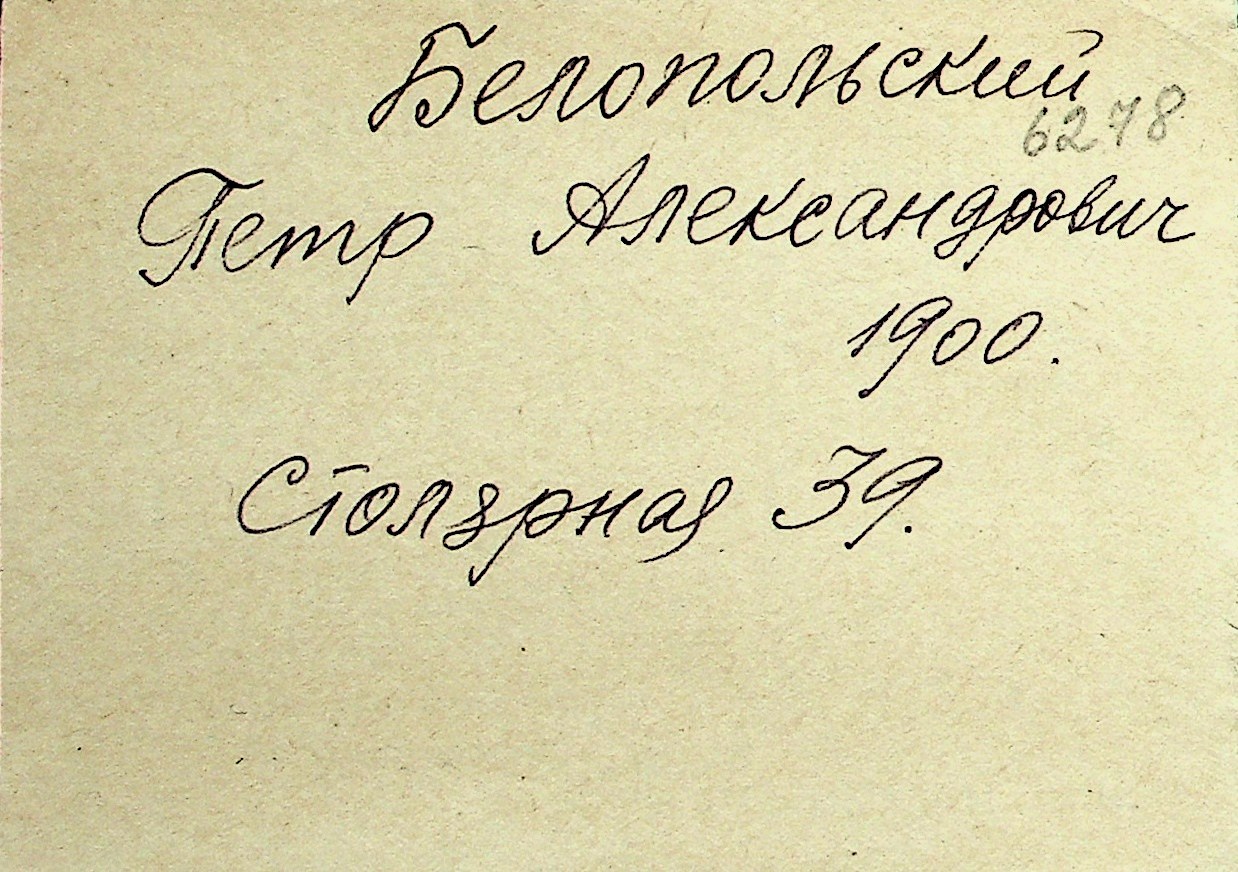 Белопольский
6278
Петр Александрович
1900.
Столярная 39.